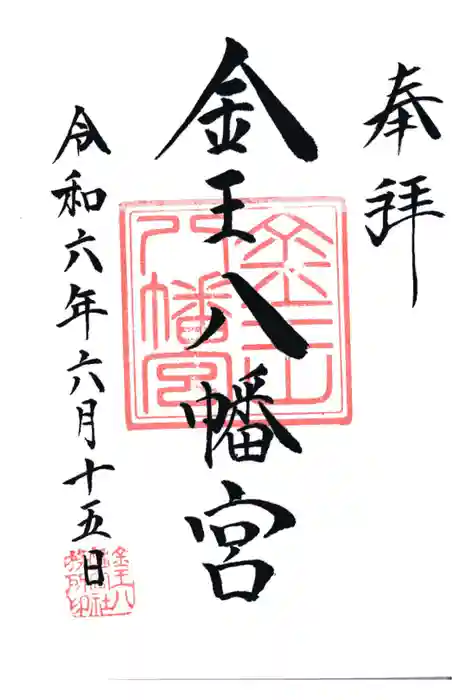 奉拝
金王八幡宮
令和六年六月十五日
金王八幡宮